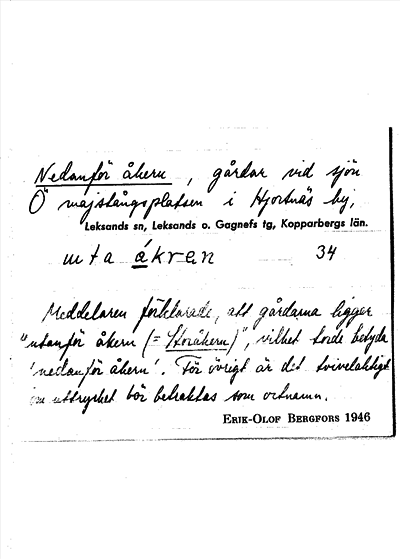 Nedanför åkern, gårdar vid sjön
Ö majstångsplatsen i Hjortnäs by,
Leksands sn, Leksands o. Gagnefs tg, Kopparbergs län.
uta åkren 34
Meddelaren förklarade, att gårdarna ligger
"utanför åkern (= Storåkern)", vilket torde betyda
'nedanför åkern'. För övrigt är det tvivelaktigt
om uttrycket bör betraktas som ortnamn.
ERIK-OLOF BERGFORS 1946